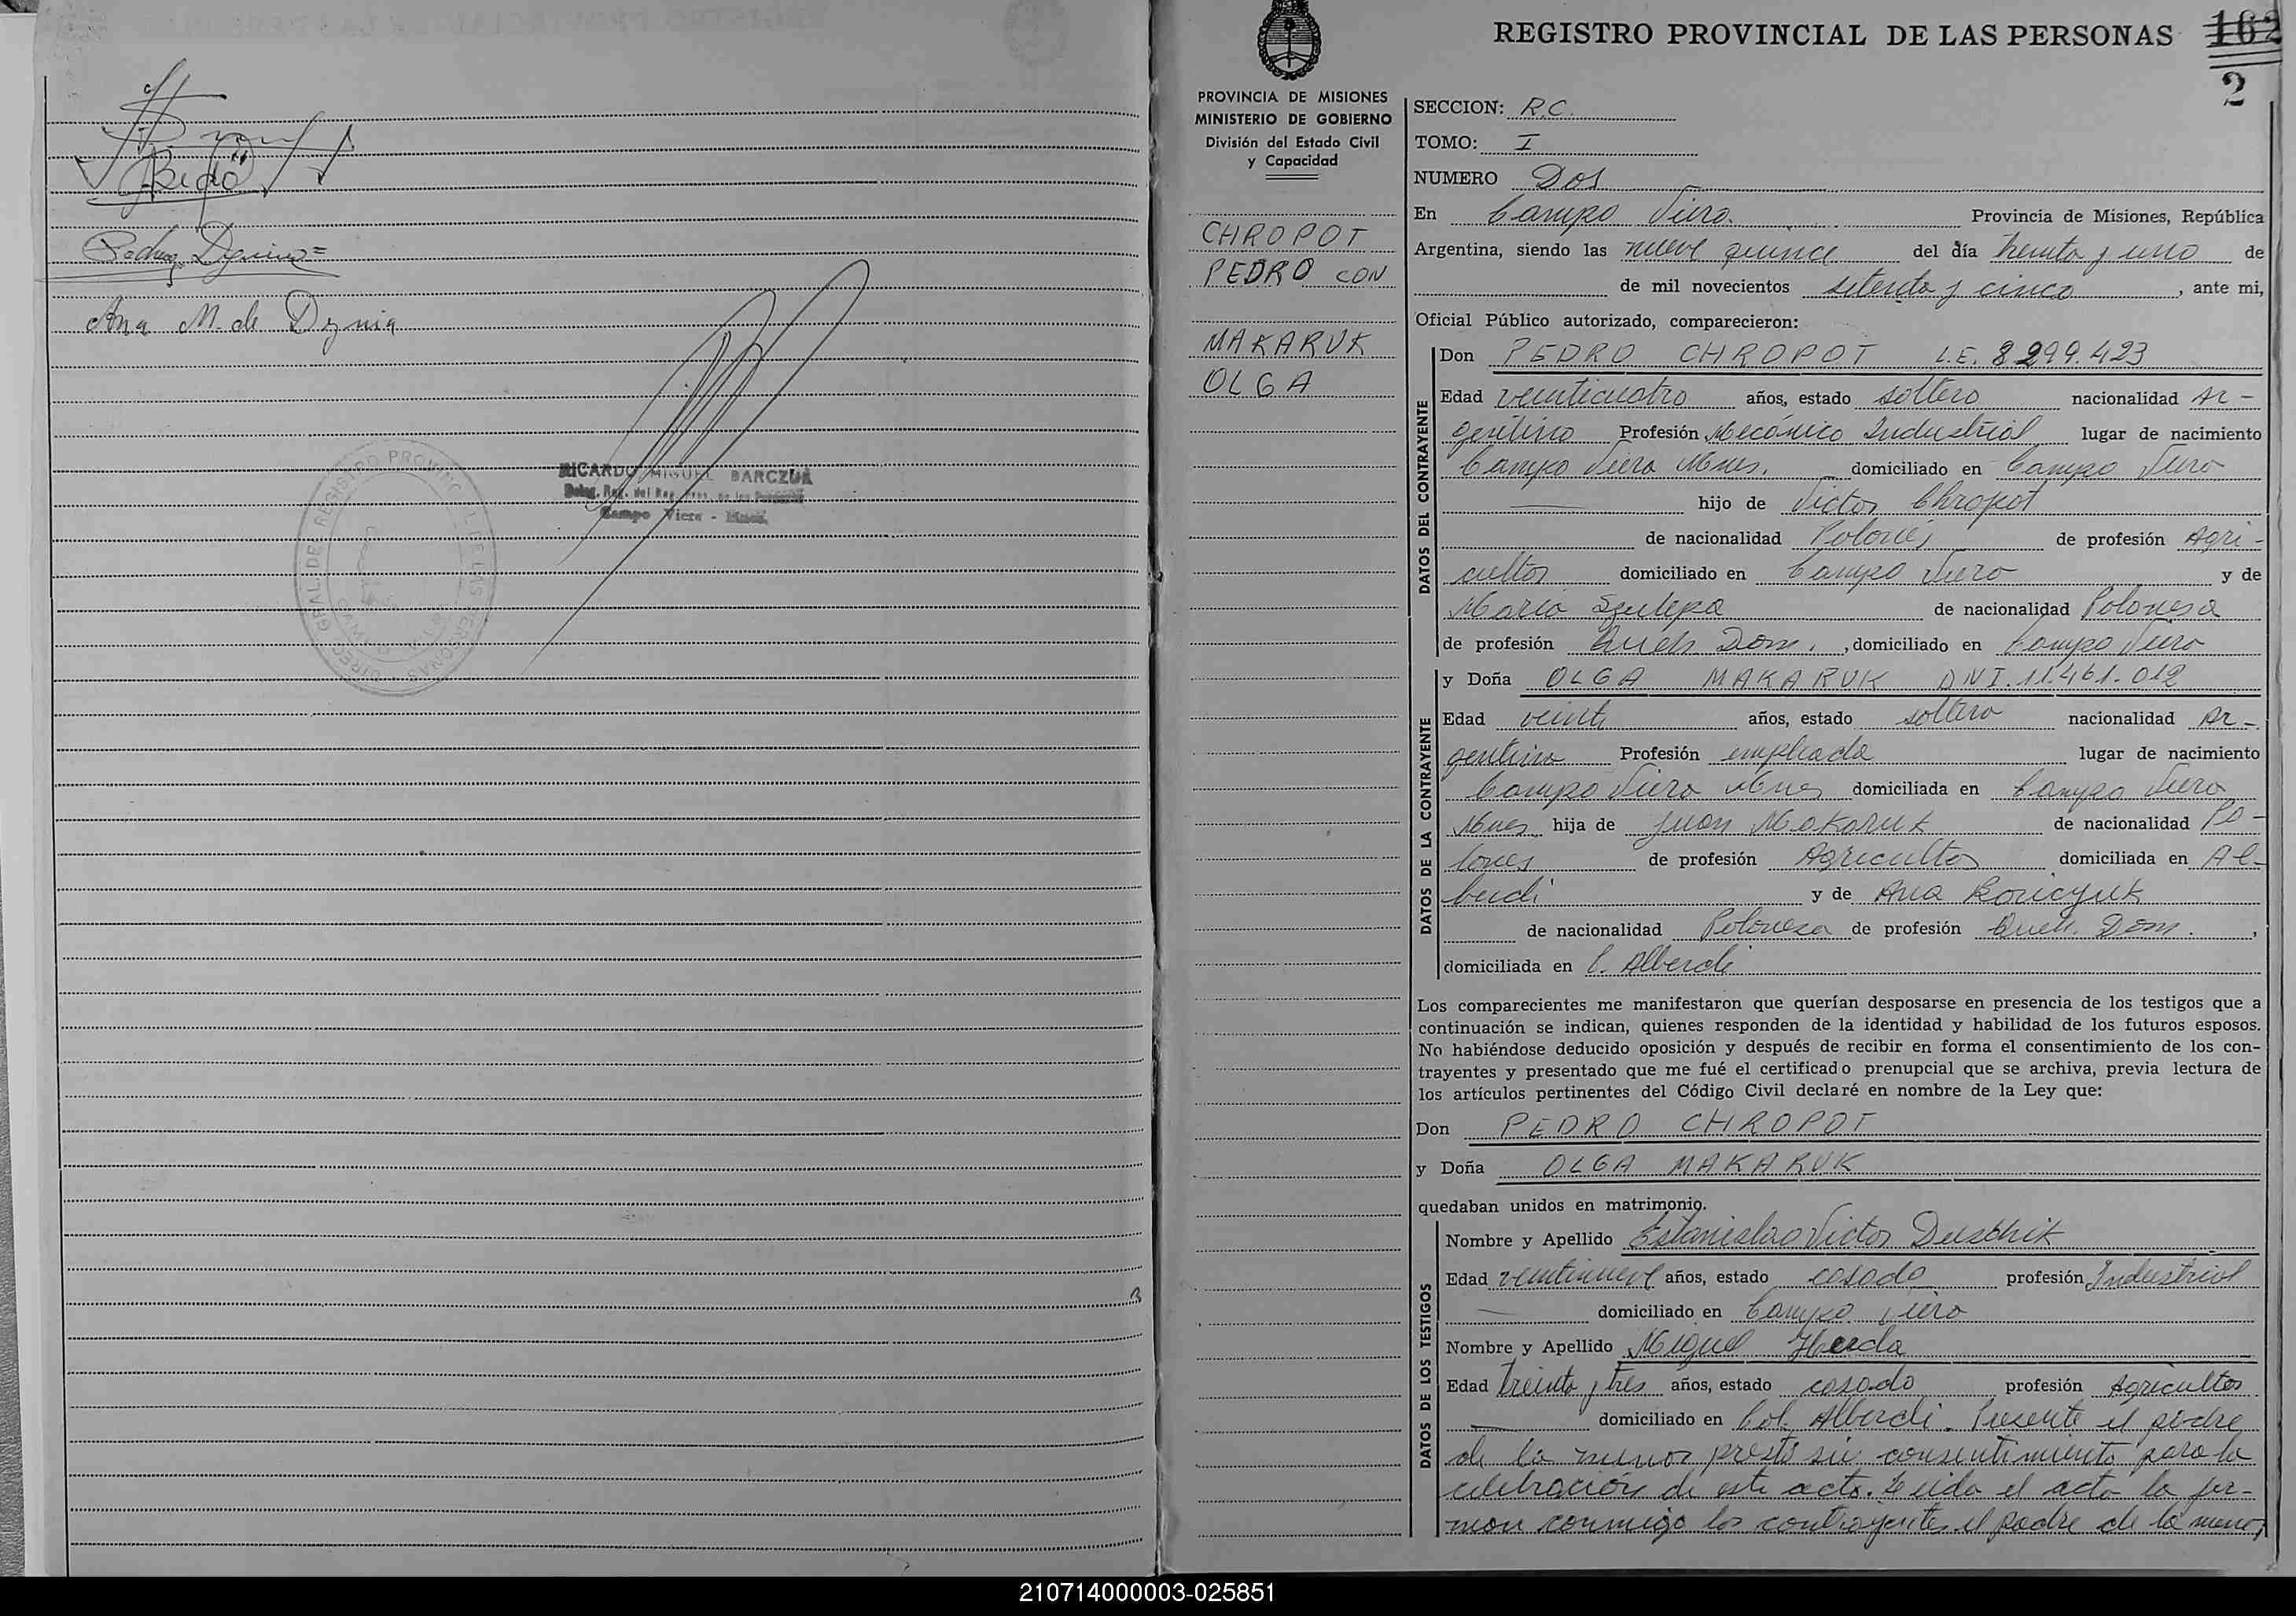 Pedro Dynia
Ana M. de Dynia
RICARDO MIGUEL BARCZUK
Deleg. Reg. del Reg. Prov. de las Personas
Campo Viera - Mnes.
DIREC. GRAL. DEL REGISTRO PROVINCIAL DE LAS PERSONAS
REGISTRO PROVINCIAL DE LAS PERSONAS
162
2
PROVINCIA DE MISIONES
MINISTERIO DE GOBIERNO
División del Estado Civil
y Capacidad
CHROPOT
PEDRO CON
MAKARUK
OLGA
SECCION: R.C.
TOMO: I
NUMERO Dos
En Campo Viera. Provincia de Misiones, República
Argentina, siendo las nueve quince del día treinta y uno de
de mil novecientos setenta y cinco, ante mi,
Oficial Público autorizado, comparecieron:
DATOS DEL CONTRAYENTE
Don PEDRO CHROPOT L.E. 8299.423
Edad veinticuatro años, estado soltero nacionalidad Ar-
gentino Profesión Mecánico Industrial lugar de nacimiento
Campo Viera Mnes. domiciliado en Campo Viera
hijo de Victor Chropot
de nacionalidad Polonés de profesión Agri-
cultor domiciliado en Campo Viera y de
Maria Szulepa de nacionalidad Polonesa
de profesión Queh. Dom., domiciliado en Campo Viera
DATOS DE LA CONTRAYENTE
y Doña OLGA MAKARUK DNI. 11.461.012
Edad veinte años, estado soltera nacionalidad Ar-
gentina Profesión empleada lugar de nacimiento
Campo Viera Mnes domiciliada en Campo Viera
Mnes hija de Juan Makaruk de nacionalidad Po-
lones de profesión Agricultor domiciliada en Al-
berdi y de Ana Boniczuk
de nacionalidad Polonesa de profesión Queh. Dom.,
domiciliada en C. Alberdi
Los comparecientes me manifestaron que querían desposarse en presencia de los testigos que a
continuación se indican, quienes responden de la identidad y habilidad de los futuros esposos.
No habiéndose deducido oposición y después de recibir en forma el consentimiento de los con-
trayentes y presentado que me fué el certificado prenupcial que se archiva, previa lectura de
los artículos pertinentes del Código Civil declaré en nombre de la Ley que:
Don PEDRO CHROPOT
y Doña OLGA MAKARUK
quedaban unidos en matrimonio.
DATOS DE LOS TESTIGOS
Nombre y Apellido Estanislao Victor Duschik
Edad veintinueve años, estado casado profesión Industrial
domiciliado en Campo Viera
Nombre y Apellido Miguel
Edad treinta y tres años, estado casado profesión Agricultor
domiciliado en Col. Alberdi. Presente el padre
de la menor prestó su consentimiento para la
celebración de este acto. Leida el acta la fir-
man conmigo los contrayentes el padre de la menor
210714000003-025851